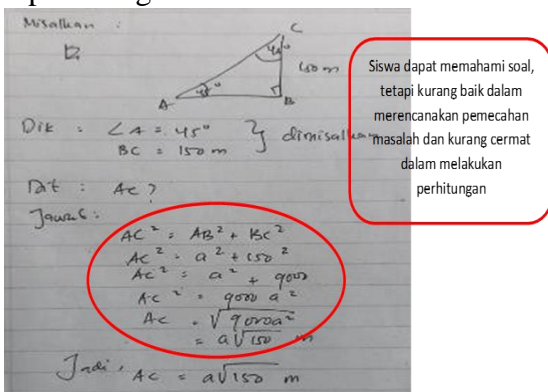 Misalkan :
C
45°
150 m
A
45°
B
Dik : ∠A = 45° } dimisalkan
BC = 150 m
Dit : AC ?
Jawab :
AC² = AB² + BC²
AC² = a² + 150²
AC² = a² + 9000
AC² = 9000 a²
AC = √9000a²
= a√150 m
Jadi, AC = a√150 m
Siswa dapat memahami soal,
tetapi kurang baik dalam
merencanakan pemecahan
masalah dan kurang cermat
dalam melakukan
perhitungan